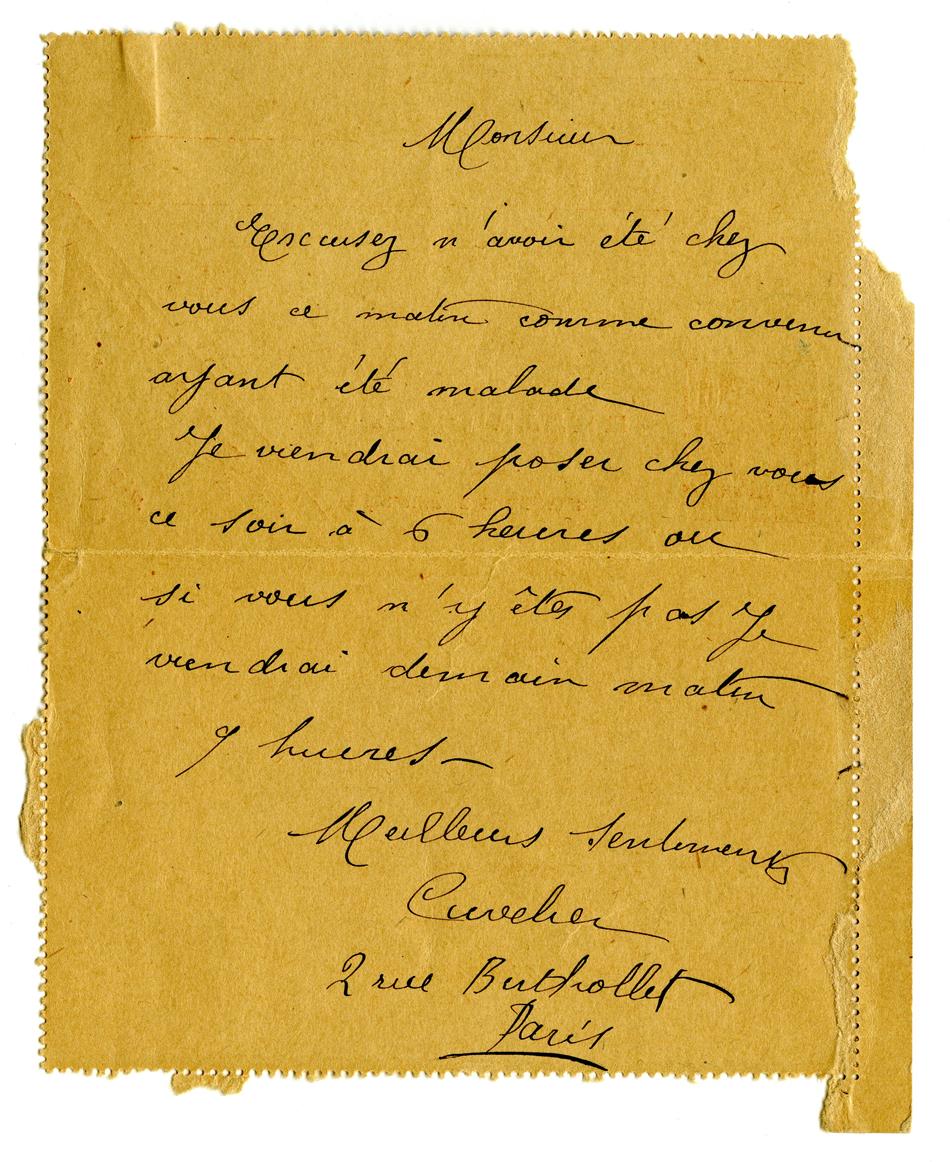 Monsieur
Excusez n'avoir été chez
vous ce matin comme convenu
ayant été malade
Je viendrai poser chez vous
ce soir à 6 heures ou
si vous n'y êtes pas Je
viendrai demain matin
9 hueres –
Meilleurs sentiments
Cuvelier
2 rue Berthollet
Paris